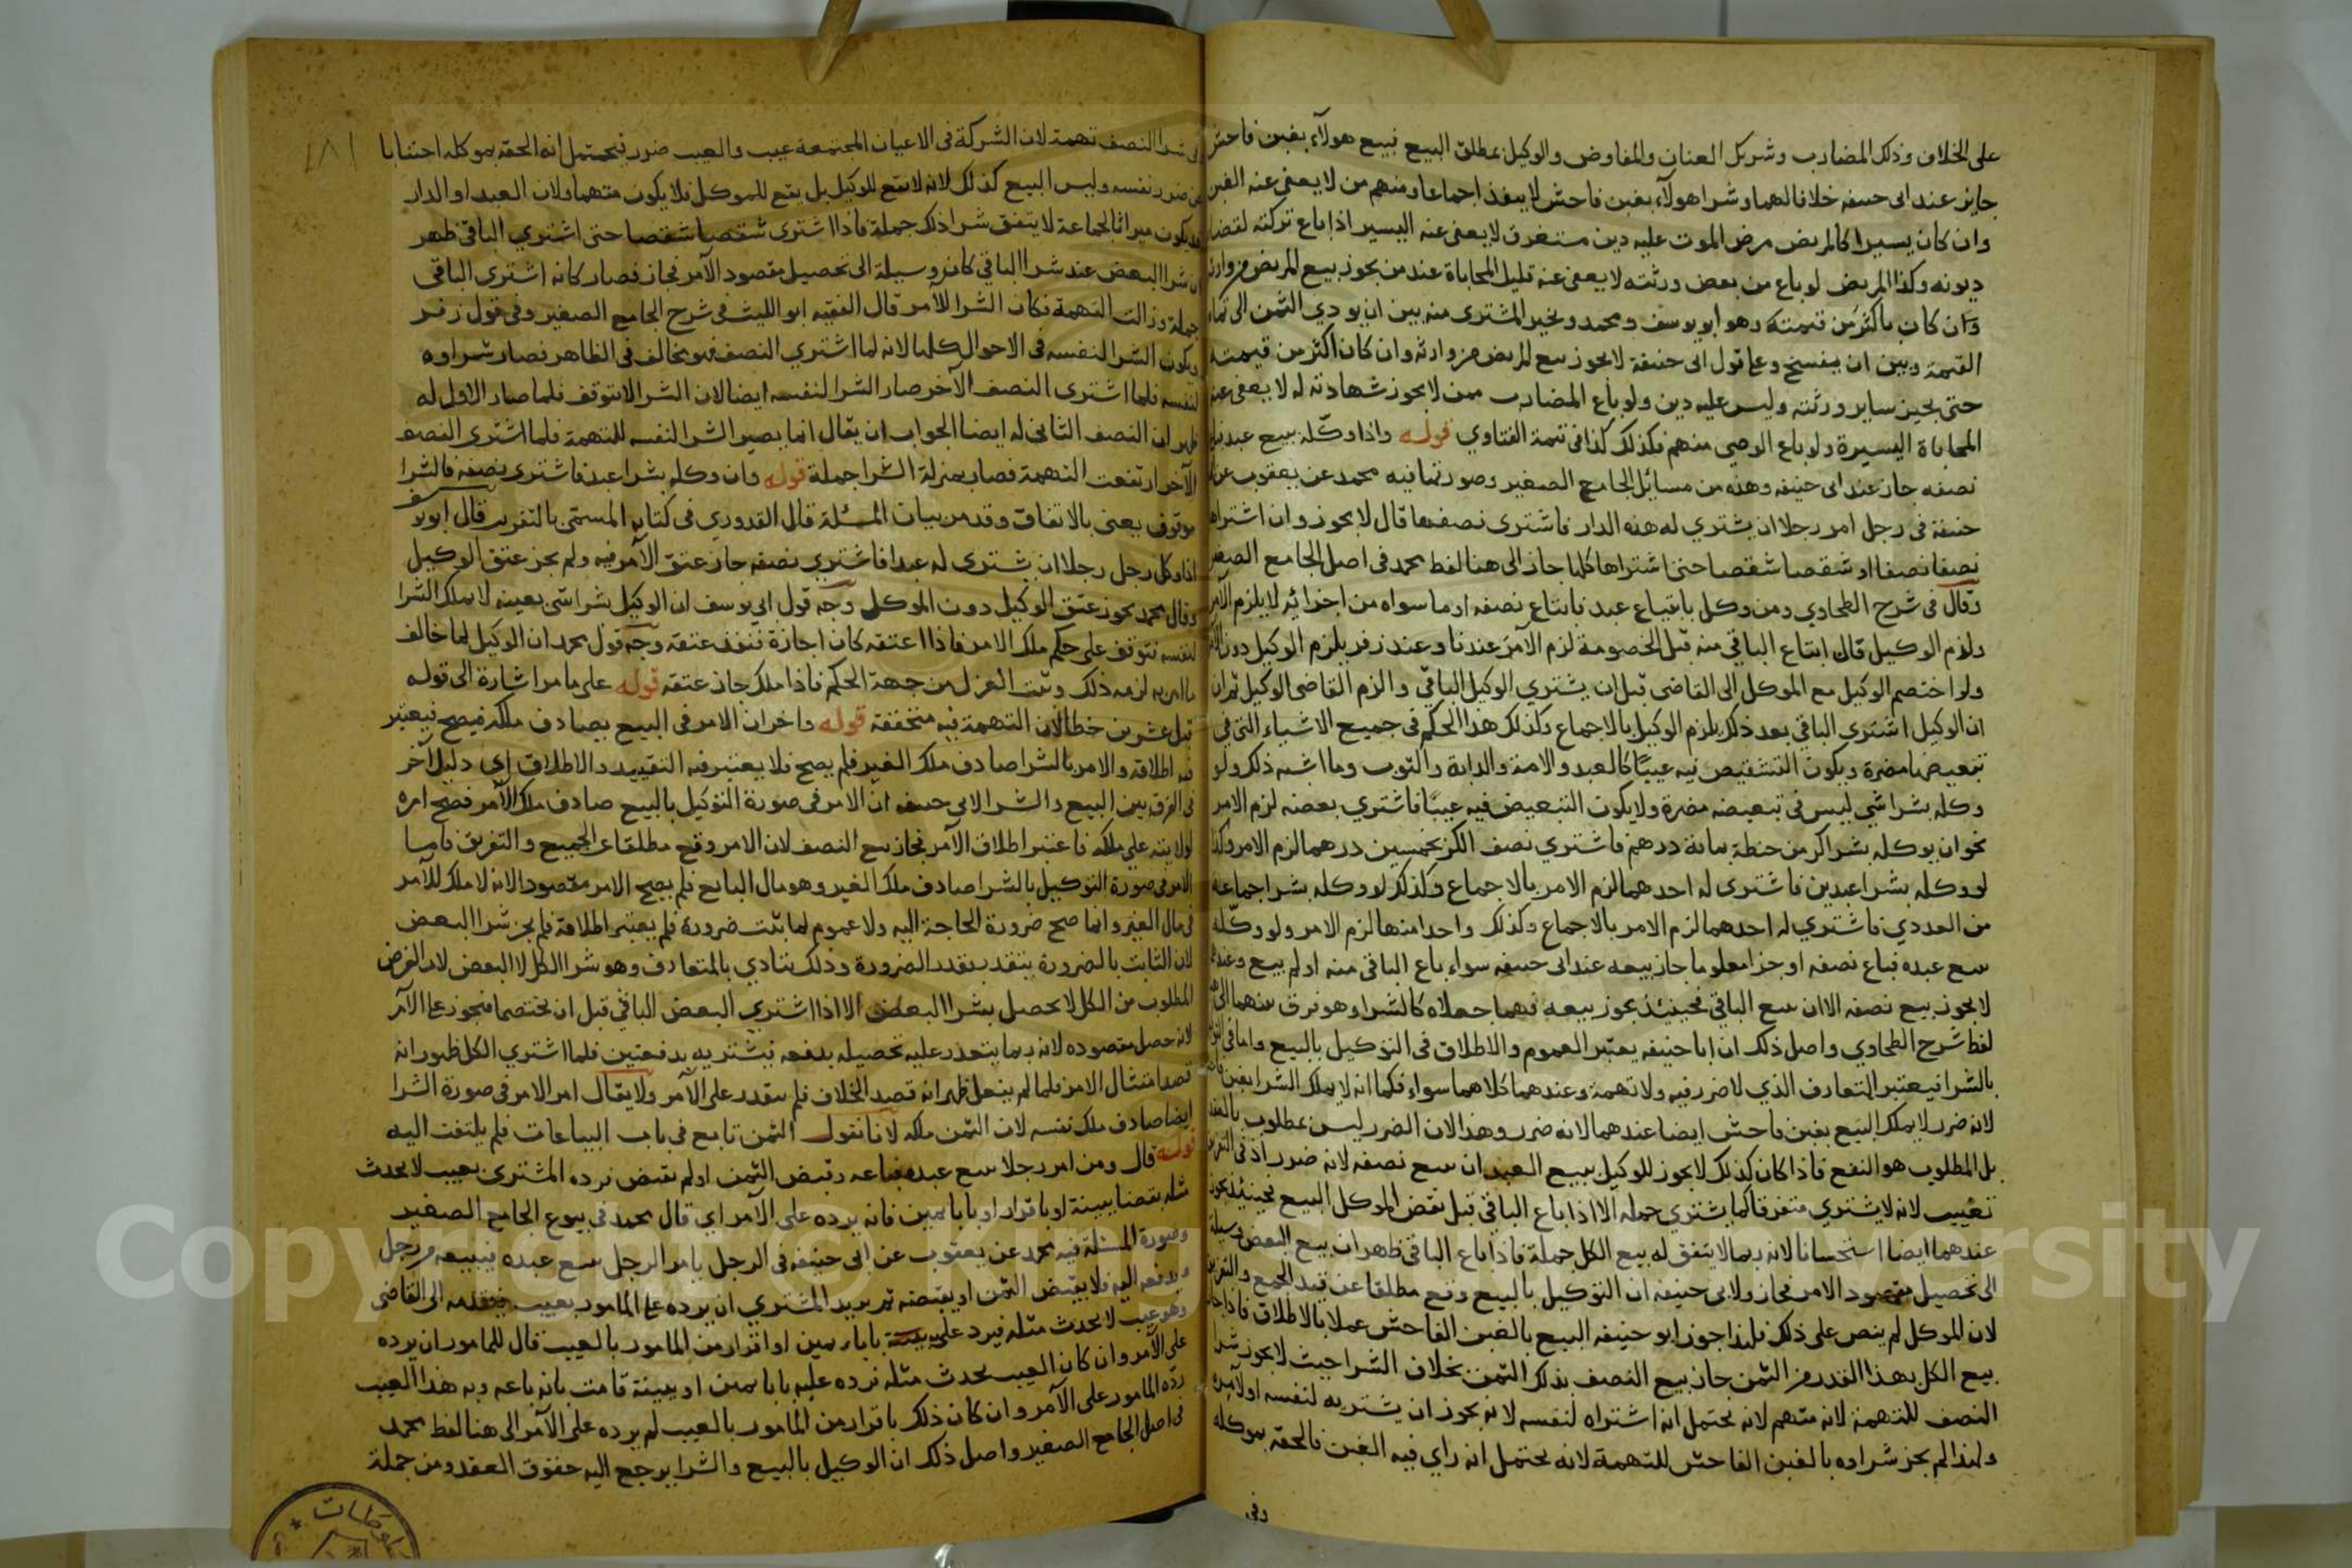 على الخلاف وذلك المضارب وشريك العنان والمفاوض والوكيل بمطلق البيع فبيع هولآء بغبن فاحش
جايز عند ابى حنيفه خلافا لهما وشرا هولآء بغبن فاحش لا ينفذ اجماعا ومنهم من لا يعفى عنه الغبن
وان كان يسيرا كالمريض مرض الموت عليه دين مستغرق لا يعفى عنه اليسير اذا باع تركته لقضا
ديونه وكذا المريض لو باع من بعض ورثته لا يعفى عنه قليل المحاباة عند من يجوز بيع المريض من وارثه
وان كان باكثر من قيمته وهو ابو يوسف ومحمد ويخير المشترى منه بين ان يودي الثمن الى تمام
القيمة وبين ان يفسخ وعلى قول ابى حنيفة لا يجوز بيع المريض من وارثه وان كان اكثر من قيمته
حتى يجيز ساير ورثته وليس عليه دين ولو باع المضارب ممن لا يجوز شهادته له لا يعفى عنه
المحاباة اليسيرة ولو باع الوصي منهم فكذلك كذا فى تتمة الفتاوي قوله واذا وكله ببيع عبد فباع
نصفه جاز عند ابى حنيفه وهذه من مسائل الجامع الصغير وصورتها فيه محمد عن يعقوب عن
حنيفة فى رجل امر رجلا ان يشتري له هذه الدار فاشترى نصفها قال لا يجوز وان اشتراها
نصفا نصفا او شقصا شقصا حتى اشتراها كلها جاز الى هنا لفظ محمد فى اصل الجامع الصغير
وقال فى شرح الطحاوي ومن وكل بابتياع عبد فابتاع نصفه او ما سواه من اجزائه لا يلزم الآمر
ولزم الوكيل قال ابتاع الباقي منه قبل الخصومة لزم الآمر عندنا وعند زفر يلزم الوكيل دون الآمر
ولو اختصم الوكيل مع الموكل الى القاضى قبل ان يشتري الوكيل الباقي والزم القاضى الوكيل ثم ان
ان الوكيل اشترى الباقي بعد ذلك يلزم الوكيل بالاجماع وكذلك هذا الحكم فى جميع الاشياء التى في
تبعيضها مضرة ويكون التشقيص فيه عيبًا كالعبد والامة والدابة والثوب وما اشبه ذلك ولو
وكله بشرا شي ليس فى تبعيضه مضرة ولا يكون التبعيض فيه عيبًا فاشتري بعضه لزم الامر
نحو ان يوكله بشرا كر من حنطة بمائة درهم فاشتري نصف الكر بخمسين درهما لزم الامر وكذا
لو وكله بشرا عبدين فاشترى له احدهما لزم الامر بالاجماع وكذلك لو وكله بشرا جماعة
من العددي فاشتري له احدهما لزم الامر بالاجماع وكذلك واحدا منها لزم الامر ولو وكله
ببيع عبده فباع نصفه او جزا معلوما جاز بيعه عند ابى حنيفه سواء باع الباقى منه او لم يبع وعندهما
لا يجوز بيع نصفه الا ان يبيع الباقي فحينئذ يجوز بيعه فهما جعلاه كالشرا وهو فرق بينهما الى هنا
لفظ شرح الطحاوي واصل ذلك ان ابا حنيفه يعتبر العموم والاطلاق فى التوكيل بالبيع واما فى التوكيل
بالشرا فيعتبر المتعارف الذي لا ضرر فيه ولا تهمة وعندهما كلاهما سواء فكما انه لا يملك الشرا بغبن فاحش
لانه ضرر لا يملك البيع بغبن فاحش ايضا عندهما لانه ضرر وهذا لان الضرر ليس بمطلوب بالعقد
بل المطلوب هو النفع فاذا كان كذلك لا يجوز للوكيل ببيع العبد ان يبيع نصفه لانه ضرر اذ فى التفريق
تعييب لانه لا يشتري متفرقا كما يشتري جملة الا اذا باع الباقى قبل نقض الموكل البيع فحينئذ يجوز
عندهما ايضا استحسانا لانه ربما لا يتفق له بيع الكل جملة فاذا باع الباقى ظهر ان بيع البعض وسيلة
الى تحصيل مقصود الامر فجاز ولابى حنيفه ان التوكيل بالبيع وقع مطلقا عن قيد الجمع والتفريق
لان الموكل لم ينص على ذلك فلهذا جوز ابو حنيفه البيع بالغبن الفاحش عملا بالاطلاق فاذا جاز
بيع الكل بهذا القدر من الثمن جاز بيع النصف بذلك الثمن بخلاف الشرا حيث لا يجوز شرا
النصف للتهمة لانه متهم لانه يحتمل انه اشتراه لنفسه لانه يجوز ان يشتريه لنفسه او لآمره
ولهذا لم يجز شراوه بالغبن الفاحش للتهمة لانه يحتمل انه راي فيه الغبن فالحقه بموكله
وفى
١٨١
فى شرا النصف تهمة لان الشركة فى الاعيان المجتمعة عيب والعيب ضرر فيحتمل انه الحقه بموكله اجتنابا
عن ضرر نفسه وليس البيع كذلك لانه لا يقع للوكيل بل يقع للموكل فلا يكون متهما ولان العبد او الدار
قد يكون ميراثا لجماعة لا يتفق شرا ذلك جملة فاذا اشترى شقصا شقصا حتى اشتري الباقى ظهر
ان شرا البعض عند شرا الباقي كان وسيلة الى تحصيل مقصود الآمر فجاز فصار كانه اشترى الباقى
جملة وزالت التهمة فكان الشرا للآمر قال الفقيه ابو الليث فى شرح الجامع الصغير وفى قول زفر
يكون الشرا لنفسه فى الاحوال كلها لانه لما اشتري النصف فهو مخالف فى الظاهر فصار شراوه
لنفسه فلما اشترى النصف الآخر صار الشرا لنفسه ايضا لان الشرا لا يتوقف فلما صار الاول له
ظهر ان النصف الثانى له ايضا الجواب ان يقال انما يصير الشرا لنفسه للتهمة فلما اشترى النصف
الآخر ارتفعت التهمة فصار بمنزلة الشرا جملة قوله وان وكله بشرا عبد فاشترى نصفه فالشرا
موقوف يعنى بالاتفاق وقد مر بيان المسئلة قال القدوري فى كتابه المسمى بالتقريب قال ابو يوسف
اذا وكل رجل رجلا ان يشترى له عبدا فاشتري نصفه جاز عتق الآمر فيه ولم يجز عتق الوكيل
وقال محمد يجوز عتق الوكيل دون الموكل وجه قول ابي يوسف ان الوكيل بشرا شى بعينه لا يملك الشرا
لنفسه فتوقف على حكم ملك الامر فاذا اعتقه كان اجازة فنفذ عتقه وجه قول محمد ان الوكيل لما خالف
ما امر به لزمه ذلك وثبت العزل من جهة الحكم فاذا ملك جاز عتقه قوله على ما مر اشارة الى قوله
قبل عشرين خطا لان التهمة فيه متحققة قوله واخر ان الامر فى البيع يصادف ملكه فيصح فيعتبر
فيه اطلاقه والامر بالشرا صادف ملك الغير فلم يصح فلا يعتبر فيه التقييد والاطلاق اي دليل آخر
فى الفرق بين البيع والشرا لابى حنيفه ان الامر فى صورة التوكيل بالبيع صادف ملك الآمر فصح امره
لولايته على ملكه فاعتبر اطلاق الآمر فجاز بيع النصف لان الامر وقع مطلقا عن الجميع والتفريق فاما
الامر فى صورة التوكيل بالشرا صادف ملك الغير وهو مال البايع فلم يصح الامر مقصودا لانه لا ملك للآمر
فى مال الغير وانما صح ضرورة الحاجة اليه ولا عموم لما يثبت ضرورة فلم يعتبر اطلاقه فلم يجز شرا البعض
لان الثابت بالضرورة يتقدر بقدر الضرورة وذلك يتادي بالمتعارف وهو شرا الكل لا البعض لان الغرض
المطلوب من الكل لا يحصل بشرا البعض الا اذا اشتري البعض الباقي قبل ان يختصما فيجوز على الآمر
لانه حصل مقصوده لانه ربما يتعذر عليه تحصيله بدفعه فيشتريه بدفعتين فلما اشتري الكل ظهر انه
قصد امتثال الامر فلما لم يفعل ظهر انه قصد الخلاف فلم ينفذ على الآمر ولا يقال امر الامر فى صورة الشرا
ايضا صادف ملك نفسه لان الثمن ملكه لانا نقول الثمن تابع فى باب البياعات فلم يلتفت اليه
قوله قال ومن امر رجلا ببيع عبده فباعه وقبض الثمن او لم يقبض فرده المشترى بعيب لا يحدث
مثله بقضا ببينة او باقرار او بابا يمين فانه يرده على الآمر اي قال محمد فى بيوع الجامع الصغير
وصورة المسئلة فيه محمد عن يعقوب عن ابى حنيفه فى الرجل يامر الرجل ببيع عبده فيبيعه من رجل
ودفعه اليه ولا يقبض الثمن او يقبضه ثم يريد المشتري ان يرده على المامور بعيب فيقدمه الى القاضى
وهو عيب لا يحدث مثله فيرد عليه ببينة باباء يمين او اقرار من المامور بالعيب قال للمامور ان يرده
على الآمر وان كان العيب يحدث مثله فرده عليه بابا يمين او ببينة قامت بانه باعه وبه هذا العيب
رده المامور على الآمر وان كان ذلك باقرار من المامور بالعيب لم يرده على الآمر الى هنا لفظ محمد
فى اصل الجامع الصغير واصل ذلك ان الوكيل بالبيع والشرا يرجع اليه حقوق العقد ومن جملة
Copyright © King Saud University